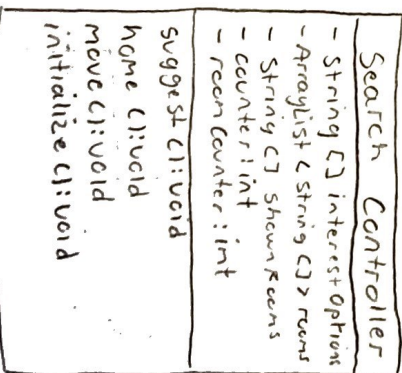 Search Controller
- String [] interestOptions
- ArrayList < String []> rooms
- String [] shownRooms
- counter: int
- roomCounter: int
suggest():void
home():void
move():void
initialize():void